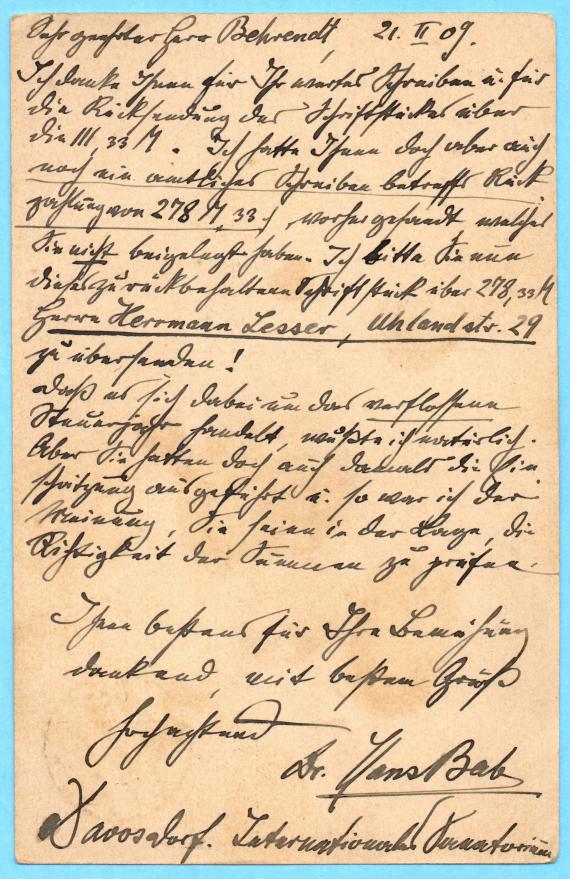 Sehr geehrter Herr Behrendt, 21. II 09.
Ich danke Ihnen für Ihr wertes Schreiben u. für
die Rücksendung des Schriftstückes über
die III, 33 M. Ich hatte Ihnen doch aber auch
noch ein amtliches Schreiben betreffs Rück
zahlung von 278 M, 33 , vorher gesandt welches
Sie nicht beigelegt haben. Ich bitte Sie nun
dieses zurückbehaltene Schriftstück über 278,33 M
Herrn Herrmann Lesser, Uhlandstr. 29
zu übersenden!
Daß es sich dabei um das verflossene
Steuerjahr handelt, wußte ich natürlich.
Aber Sie hatten doch auch damals die Ein
schätzung ausgeführt u. so war ich der
Meinung, Sie seien in der Lage, die
Richtigkeit der Summen zu prüfen.
Ihnen bestens für Ihre Bemühung
dankend, mit bestem Gruß
hochachtend
Dr. Hans Bab
Davosdorf. Internationales Sanatorium